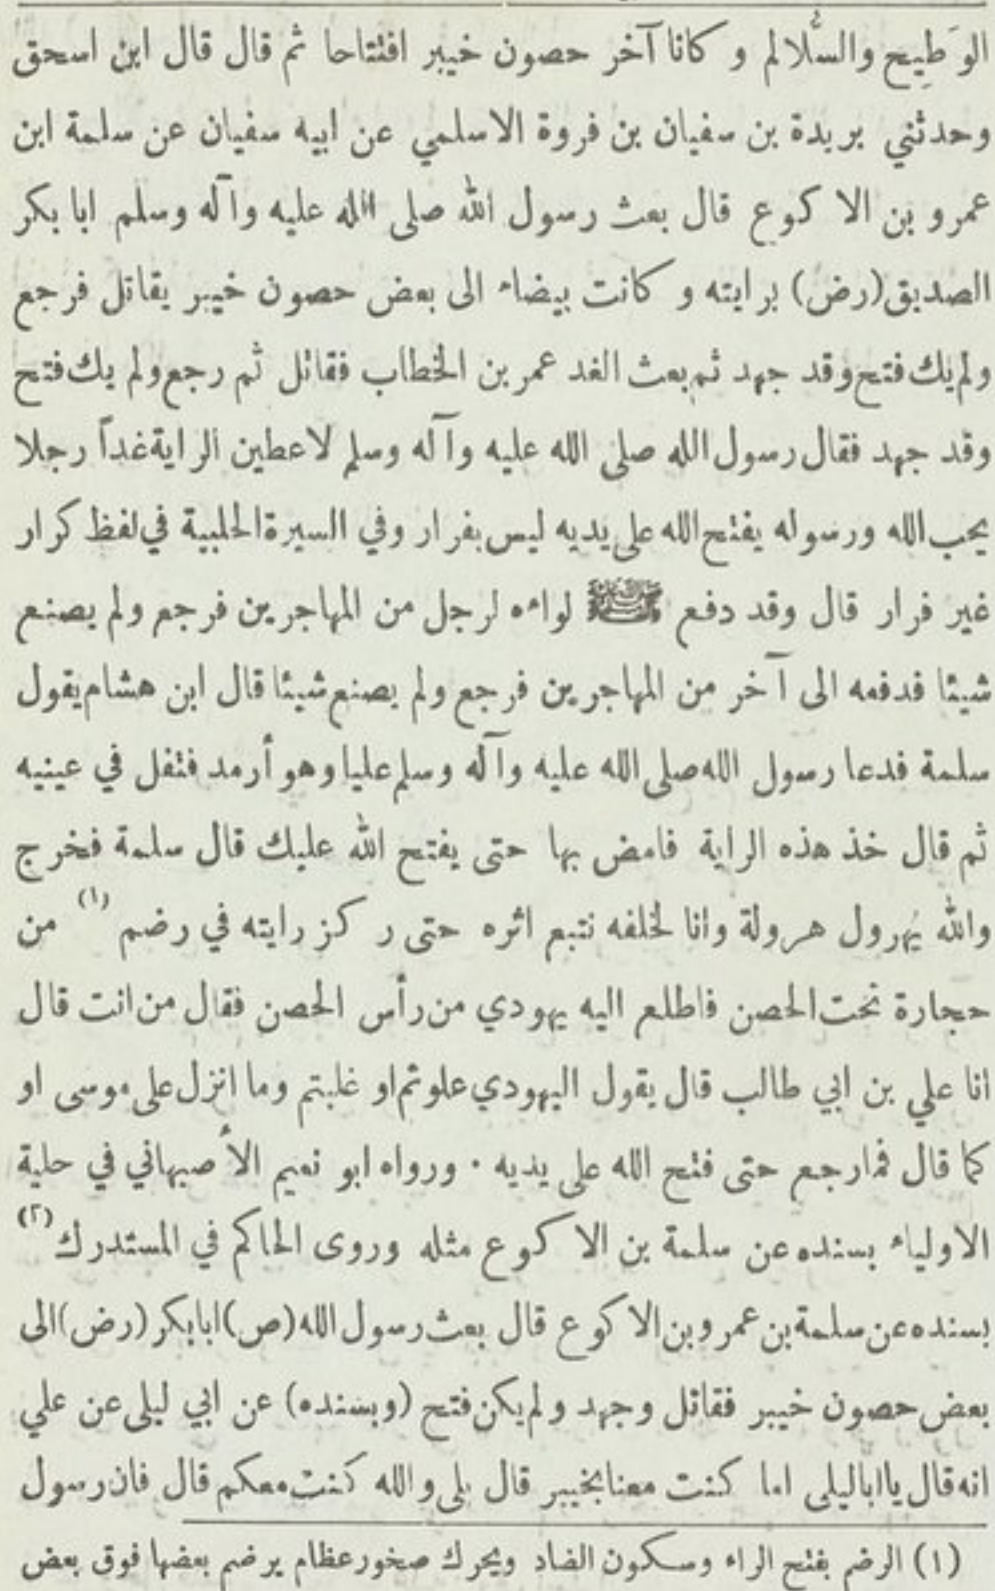 الوَطِيح والسُّلالم و كانا آخر حصون خيبر افتتاحا ثم قال قال ابن اسحق
وحدثني بريدة بن سفيان بن فروة الاسلمي عن ابيه سفيان عن سلمة ابن
عمرو بن الا كوع قال بعث رسول الله صلى الله عليه وآله وسلم ابا بكر
الصديق (رض) برايته و كانت بيضاء الى بعض حصون خيبر يقاتل فرجع
ولم يك فتح وقد جهد ثم بعث الغد عمر بن الخطاب فقاتل ثم رجع ولم يك فتح
وقد جهد فقال رسول الله صلى الله عليه وآله وسلم لاعطين الراية غداً رجلا
يحب الله ورسوله يفتح الله على يديه ليس بفرار وفي السيرة الحلبية في لفظ كرار
غير فرار قال وقد دفع ﷺ لواءه لرجل من المهاجرين فرجع ولم يصنع
شيئا فدفعه الى آخر من المهاجرين فرجع ولم يصنع شيئا قال ابن هشام يقول
سلمة فدعا رسول الله صلى الله عليه وآله وسلم عليا وهو أرمد فتفل في عينيه
ثم قال خذ هذه الراية فامض بها حتى يفتح الله عليك قال سلمة فخرج
والله يُهرول هرولة وانا لخلفه نتبع اثره حتى ركز رايته في رضم (١) من
حجارة تحت الحصن فاطلع اليه يهودي من رأس الحصن فقال من انت قال
انا علي بن ابي طالب قال يقول اليهودي علوتم او غلبتم وما انزل على موسى او
كما قال فما رجع حتى فتح الله على يديه . ورواه ابو نعيم الأصبهاني في حلية
الاولياء بسنده عن سلمة بن الا كوع مثله وروى الحاكم في المستدرك (٢)
بسنده عن سلمة بن عمرو بن الا كوع قال بعث رسول الله (ص) ابا بكر (رض) الى
بعض حصون خيبر فقاتل وجهد ولم يكن فتح (وبسنده) عن ابي ليلى عن علي
انه قال يا ابا ليلى اما كنت معنا بخيبر قال بلى والله كنت معكم قال فان رسول
(١) الرضم بفتح الراء وسكون الضاد ويحرك صخور عظام يرضم بعضها فوق بعض